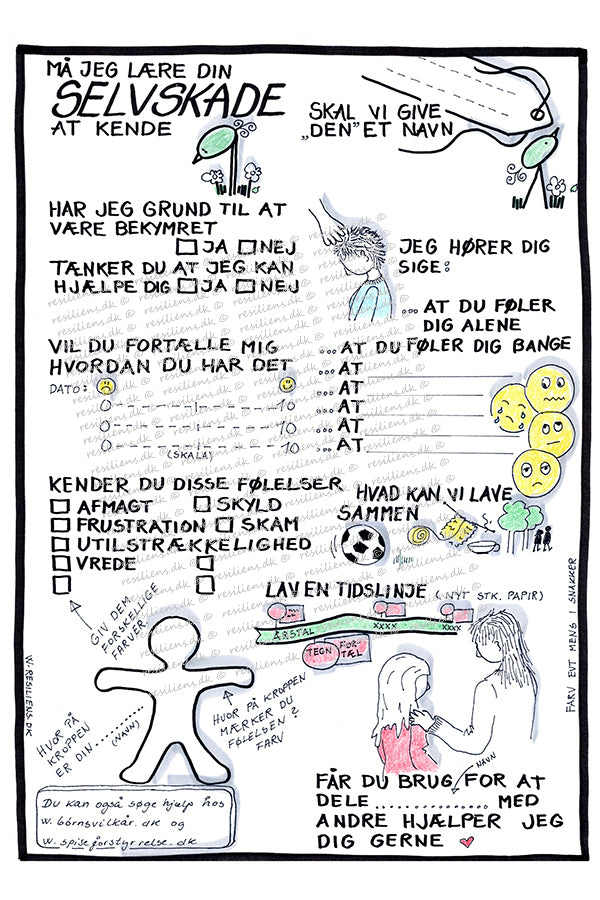 MÅ JEG LÆRE DIN
SELVSKADE
AT KENDE
SKAL VI GIVE
„DEN" ET NAVN
HAR JEG GRUND TIL AT
VÆRE BEKYMRET
JA NEJ
TÆNKER DU AT JEG KAN
HJÆLPE DIG JA NEJ
JEG HØRER DIG
SIGE:
... AT DU FØLER
DIG ALENE
... AT DU FØLER DIG BANGE
... AT
... AT
... AT
... AT
... AT
VIL DU FORTÆLLE MIG
HVORDAN DU HAR DET
DATO:
0 10
0 10
0 10
(SKALA)
KENDER DU DISSE FØLELSER
AFMAGT SKYLD
FRUSTRATION SKAM
UTILSTRÆKKELIGHED
VREDE
HVAD KAN VI LAVE
SAMMEN
GIV DEM
FORSKELLIGE
FARVER
LAV EN TIDSLINJE (NYT STK. PAPIR)
ÅRSTAL XXXX XXXX
TEGN FOR-
TÆL
HVOR PÅ
KROPPEN
ER DIN.......
(NAVN)
HVOR PÅ KROPPEN
MÆRKER DU
FØLELSEN?
FARV
FARV EVT MENS I SNAKKER
W. RESILIENS.DK
NAVN
FÅR DU BRUG FOR AT
DELE ............... MED
ANDRE HJÆLPER JEG
DIG GERNE
Du kan også søge hjælp hos
w. børnsvilkår.dk og
w. spiseforstyrrelse.dk
resiliens.dk ©